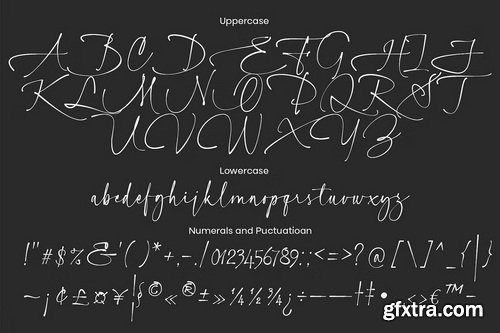 Uppercase
A B C D E F G H I J
K L M N O P Q R S T
U V W X Y Z
Lowercase
abcdefghijklmnopqrstuvwxyz
Numerals and Puctuatioan
!"#$%&'()*+,-./0123456789:;<=>?@[\]^_{|}
~¡¢£¤¥¦©«®±»¼½¾¿÷–—‡•‹›€™−
gfxtra.com